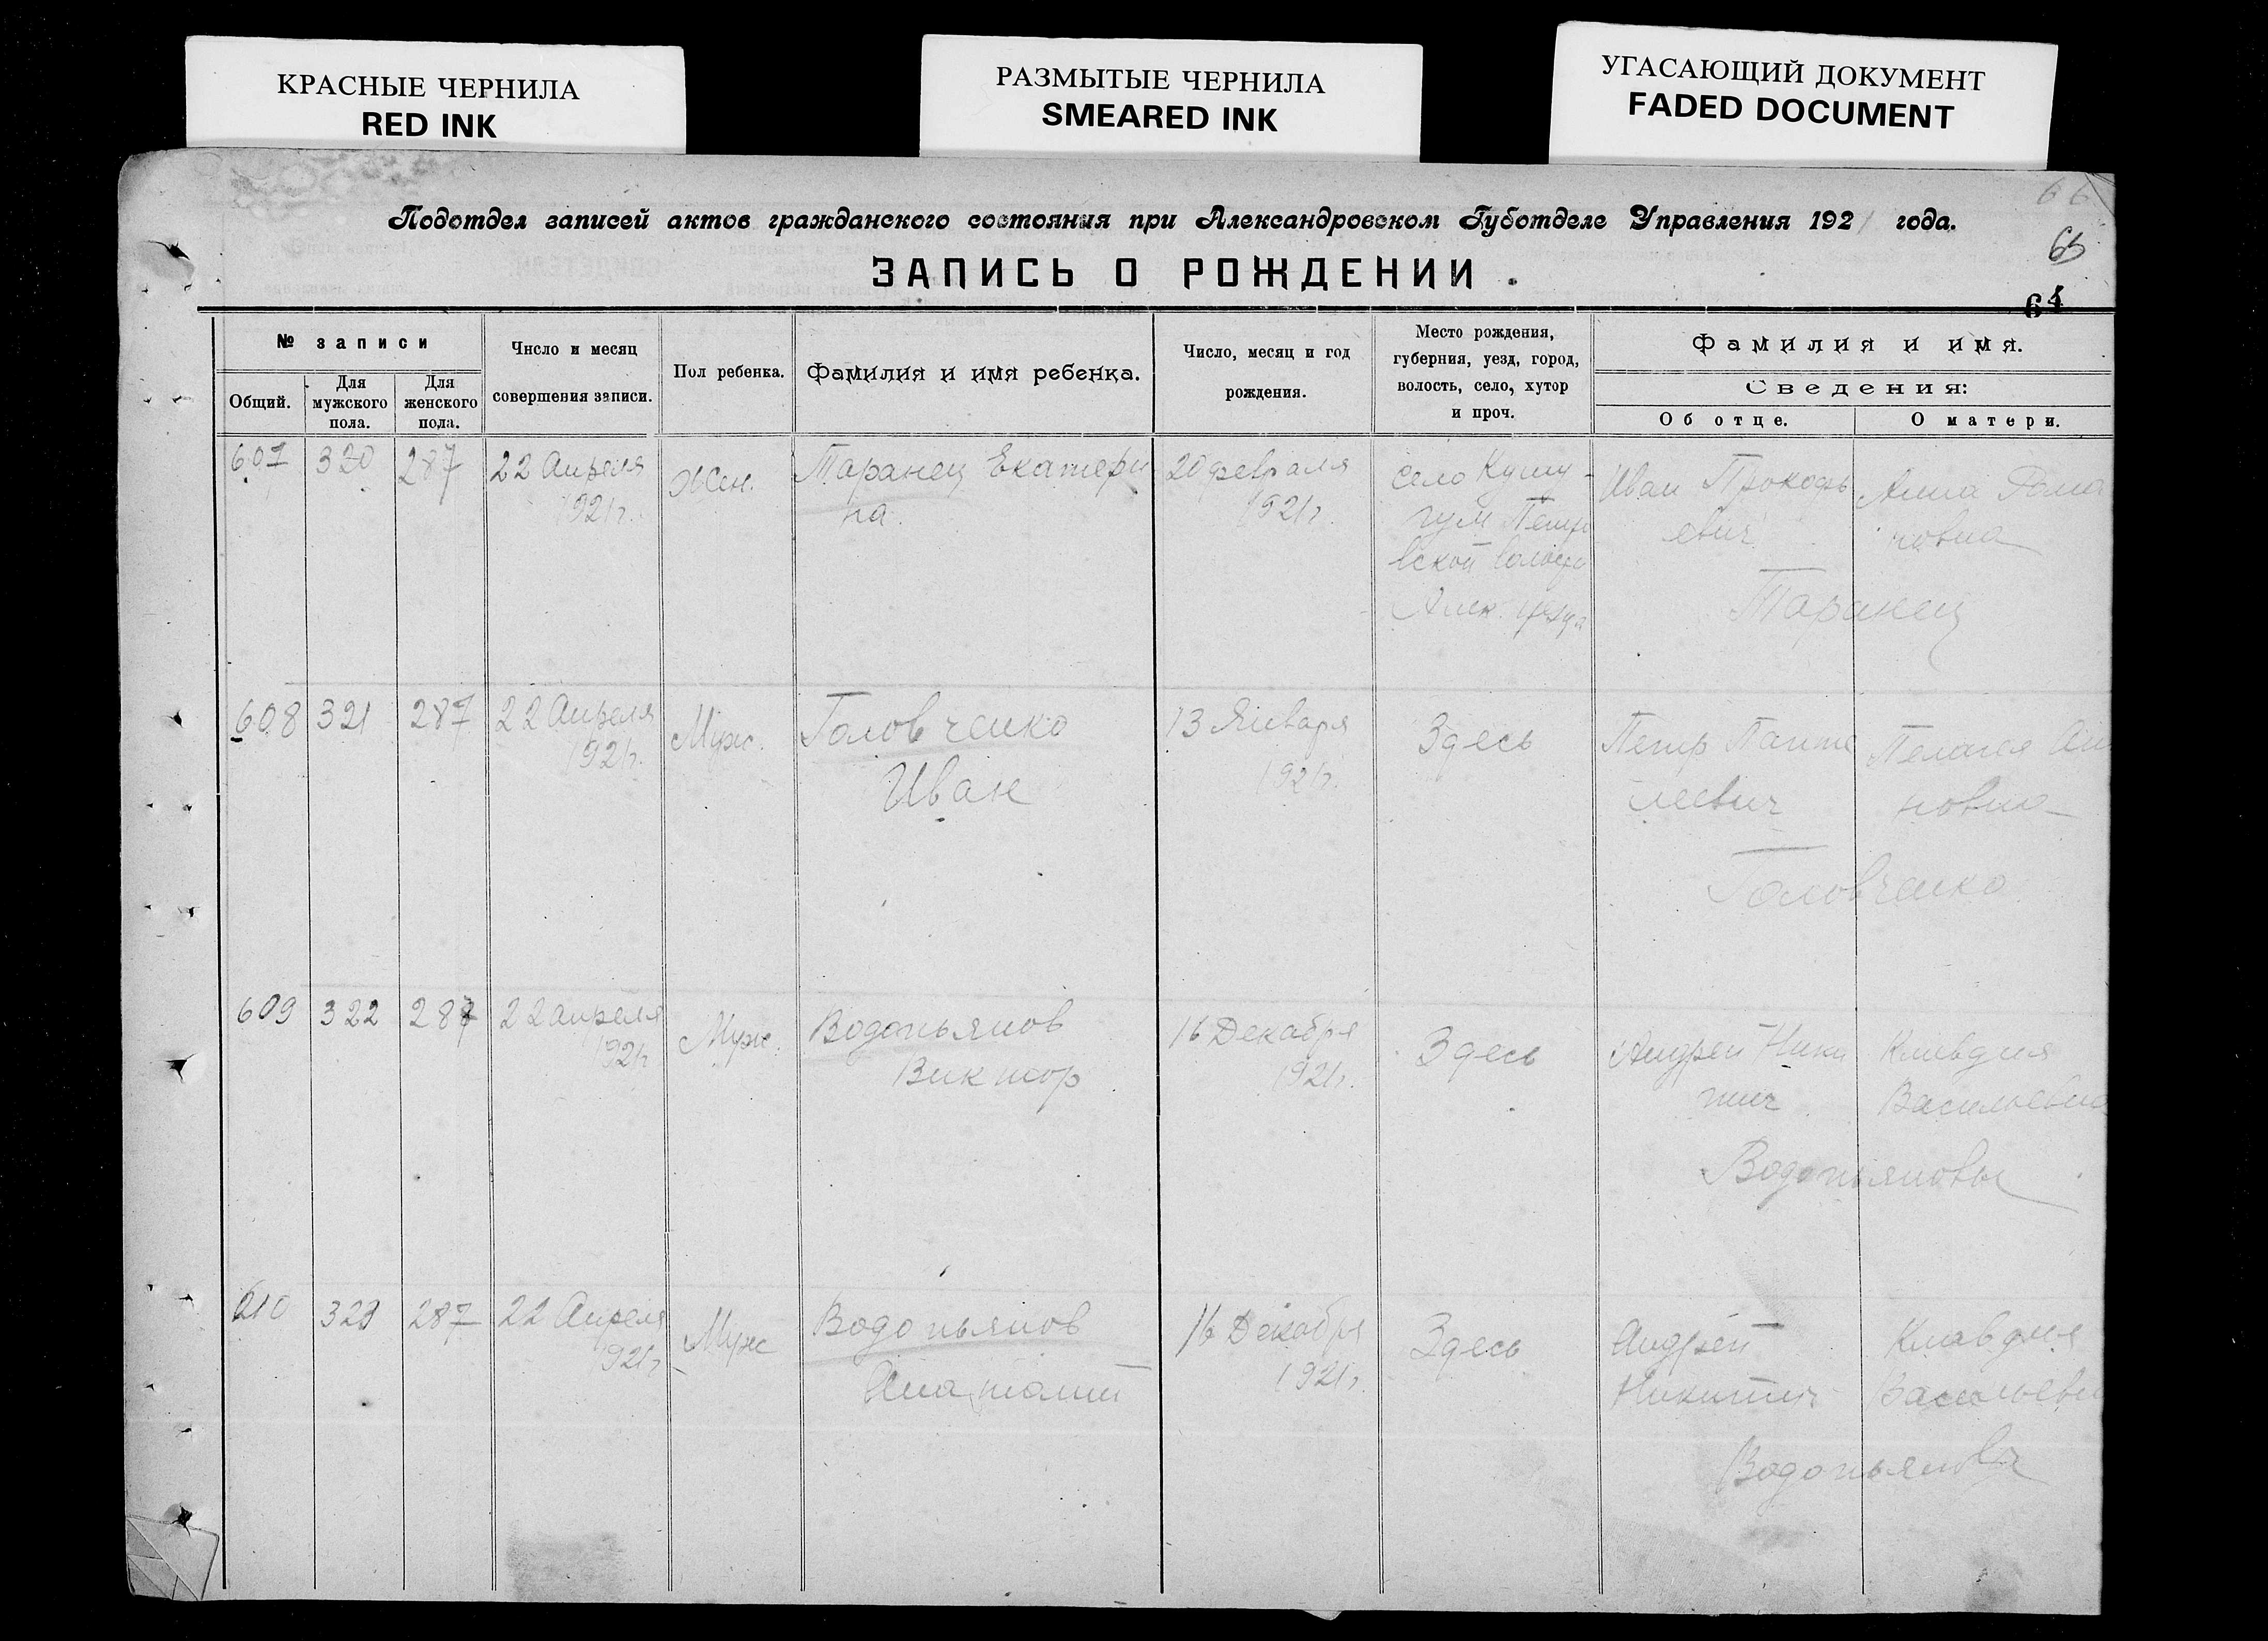 КРАСНЫЕ ЧЕРНИЛА
RED INK
РАЗМЫТЫЕ ЧЕРНИЛА
SMEARED INK
УГАСАЮЩИЙ ДОКУМЕНТ
FADED DOCUMENT
66
Подотдел записей актов гражданского состояния при Александровском Губотделе Управления 1921 года.
65
ЗАПИСЬ О РОЖДЕНИИ.
64
№ записи
Общий.
Для
мужского
пола.
Для
женского
пола.
Число и месяц
совершения записи.
Пол ребенка.
Фамилия и имя ребенка.
Число, месяц и год
рождения.
Место рождения,
губерния, уезд, город,
волость, село, хутор
и проч.
Фамилия и имя.
Сведения:
Об отце.
О матери.
607
320
287
22 Апреля
1921г.
Жен.
Таранец Екатери
на.
20 февраля
1921г.
село Кушу-
гум Петро
вской волости
Алек. уезда
Иван Прокофь
евич
Анна Рома
новна
Таранец
608
321
287
22 Апреля
1921г.
Муж.
Головченко
Иван
13 Января
1921г.
Здесь
Петр Панте
леевич
Пелагея
новна
Головченко
609
322
287
22 апреля
1921г
Муж.
Водопьянов
Виктор
16 Декабря
1921г.
Здесь
Андрей Ники
тич
Клавдия
Васильевна
Водопьяновы
610
323
287
22 Апреля
1921г
Муж
Водопьянов
Анатолий
16 Декабря
1921г.
Здесь
Андрей
Никитич
Клавдия
Васильевн
Водопьяновы